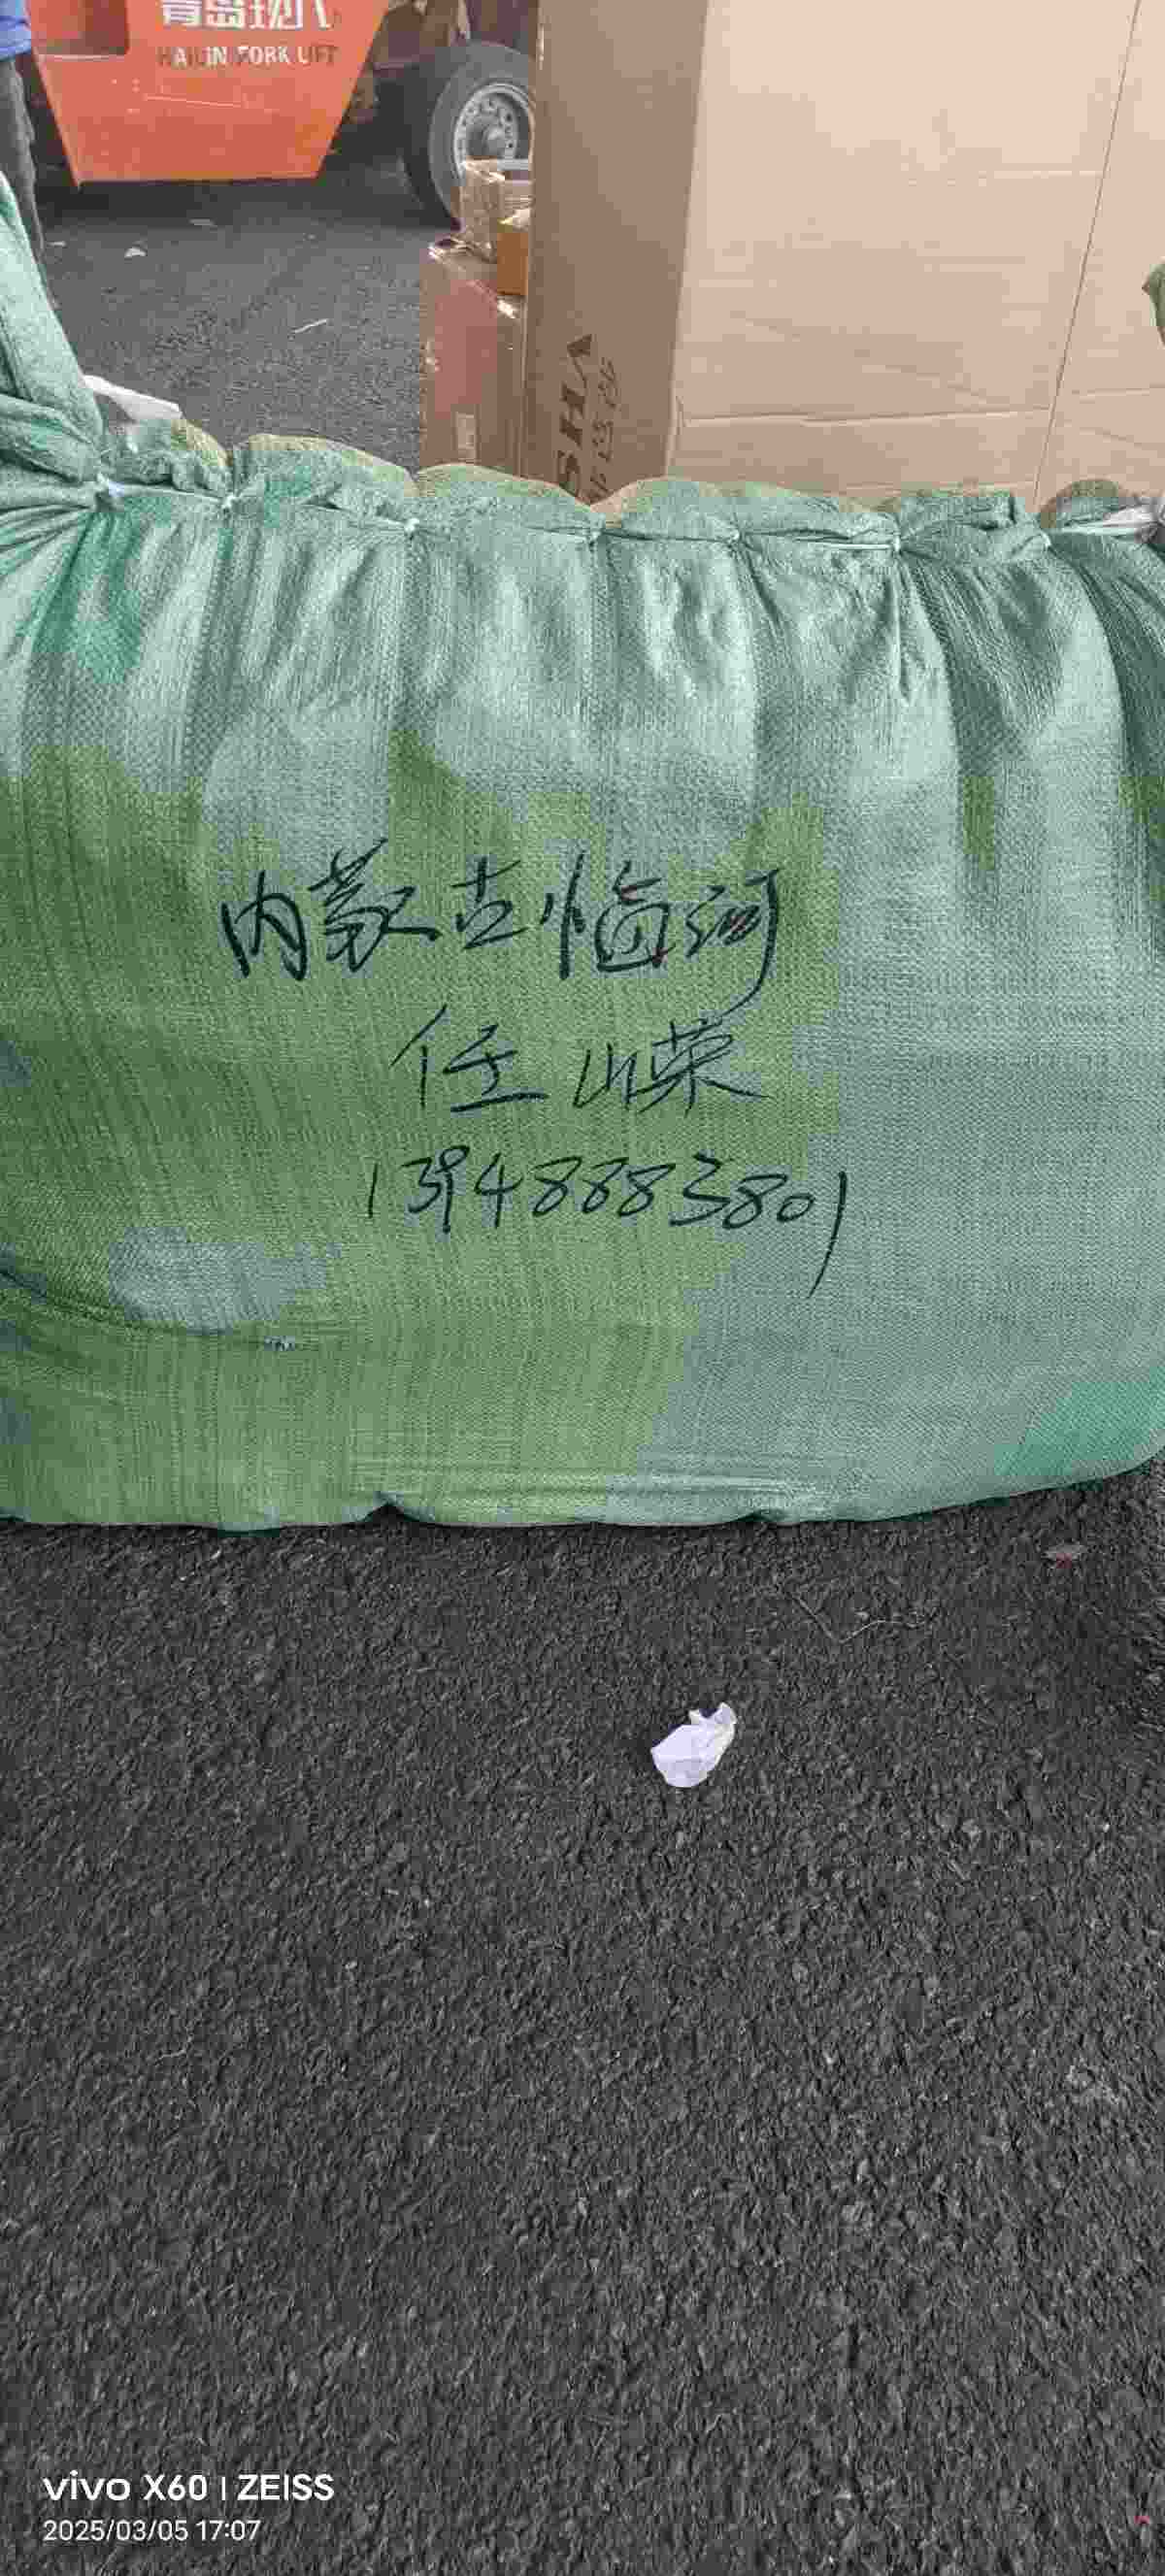 HAILIN FORK LIFT
SHA
内蒙古临河
任山荣
13948883801
vivo X60 | ZEISS
2025/03/05 17:07